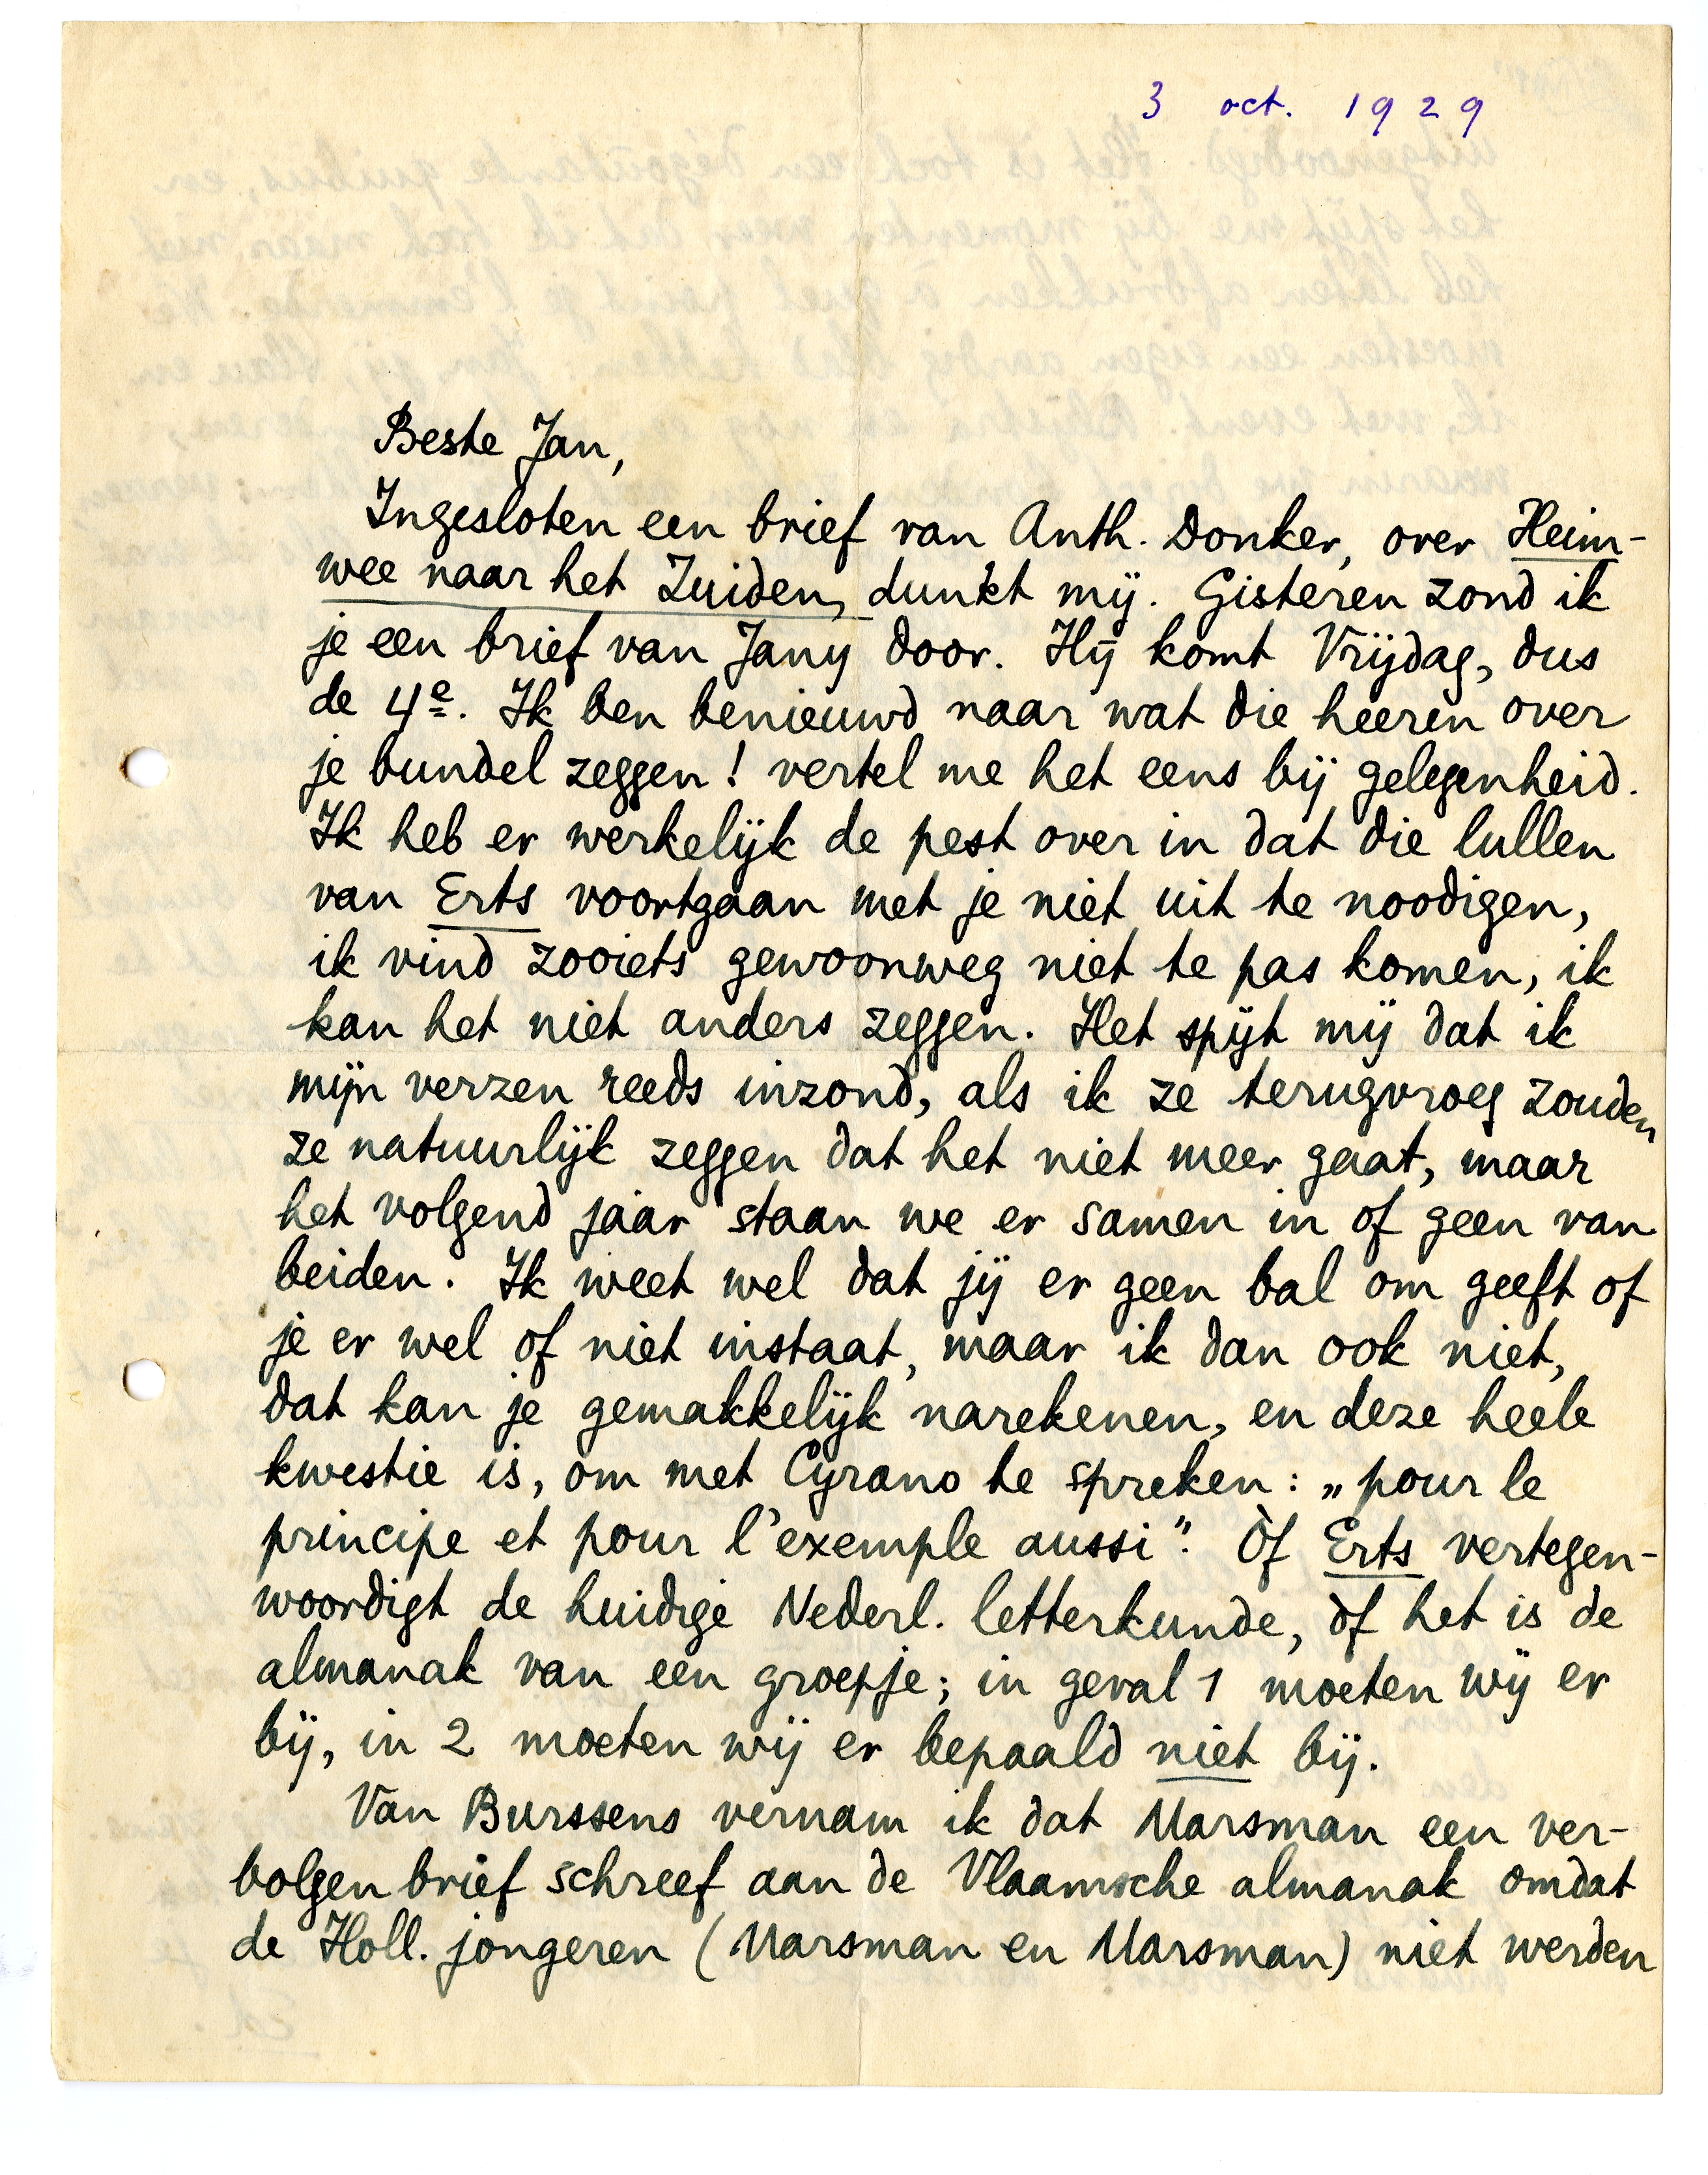 3 oct. 1929
Beste Jan,
Ingesloten een brief van Anth. Donker, over Heim-
wee naar het Zuiden, dunkt mij. Gisteren zond ik
je een brief van Jany door. Hij komt Vrijdag, dus
de 4e. Ik ben benieuwd naar wat die heeren over
je bundel zeggen! vertel me het eens bij gelegenheid.
Ik heb er werkelijk de pest over in dat die lullen
van Erts voortgaan met je niet uit te noodigen,
ik vind zooiets gewoonweg niet te pas komen, ik
kan het niet anders zeggen. Het spijt mij dat ik
mijn verzen reeds inzond, als ik ze terugvroeg zouden
ze natuurlijk zeggen dat het niet meer gaat, maar
het volgend jaar staan we er samen in of geen van
beiden. Ik weet wel dat jij er geen bal om geeft of
je er wel of niet instaat, maar ik dan ook niet,
dat kan je gemakkelijk narekenen, en deze heele
kwestie is, om met Cyrano te spreken: „pour le
principe et pour l'exemple aussi”. Òf Erts vertegen-
woordigt de huidige Nederl. letterkunde, òf het is de
almanak van een groepje; in geval 1 moeten wij er
bij, in 2 moeten wij er bepaald niet bij.
Van Burssens vernam ik dat Marsman een ver-
bolgen brief schreef aan de Vlaamsche almanak omdat
de Holl. jongeren (Marsman en Marsman) niet werden